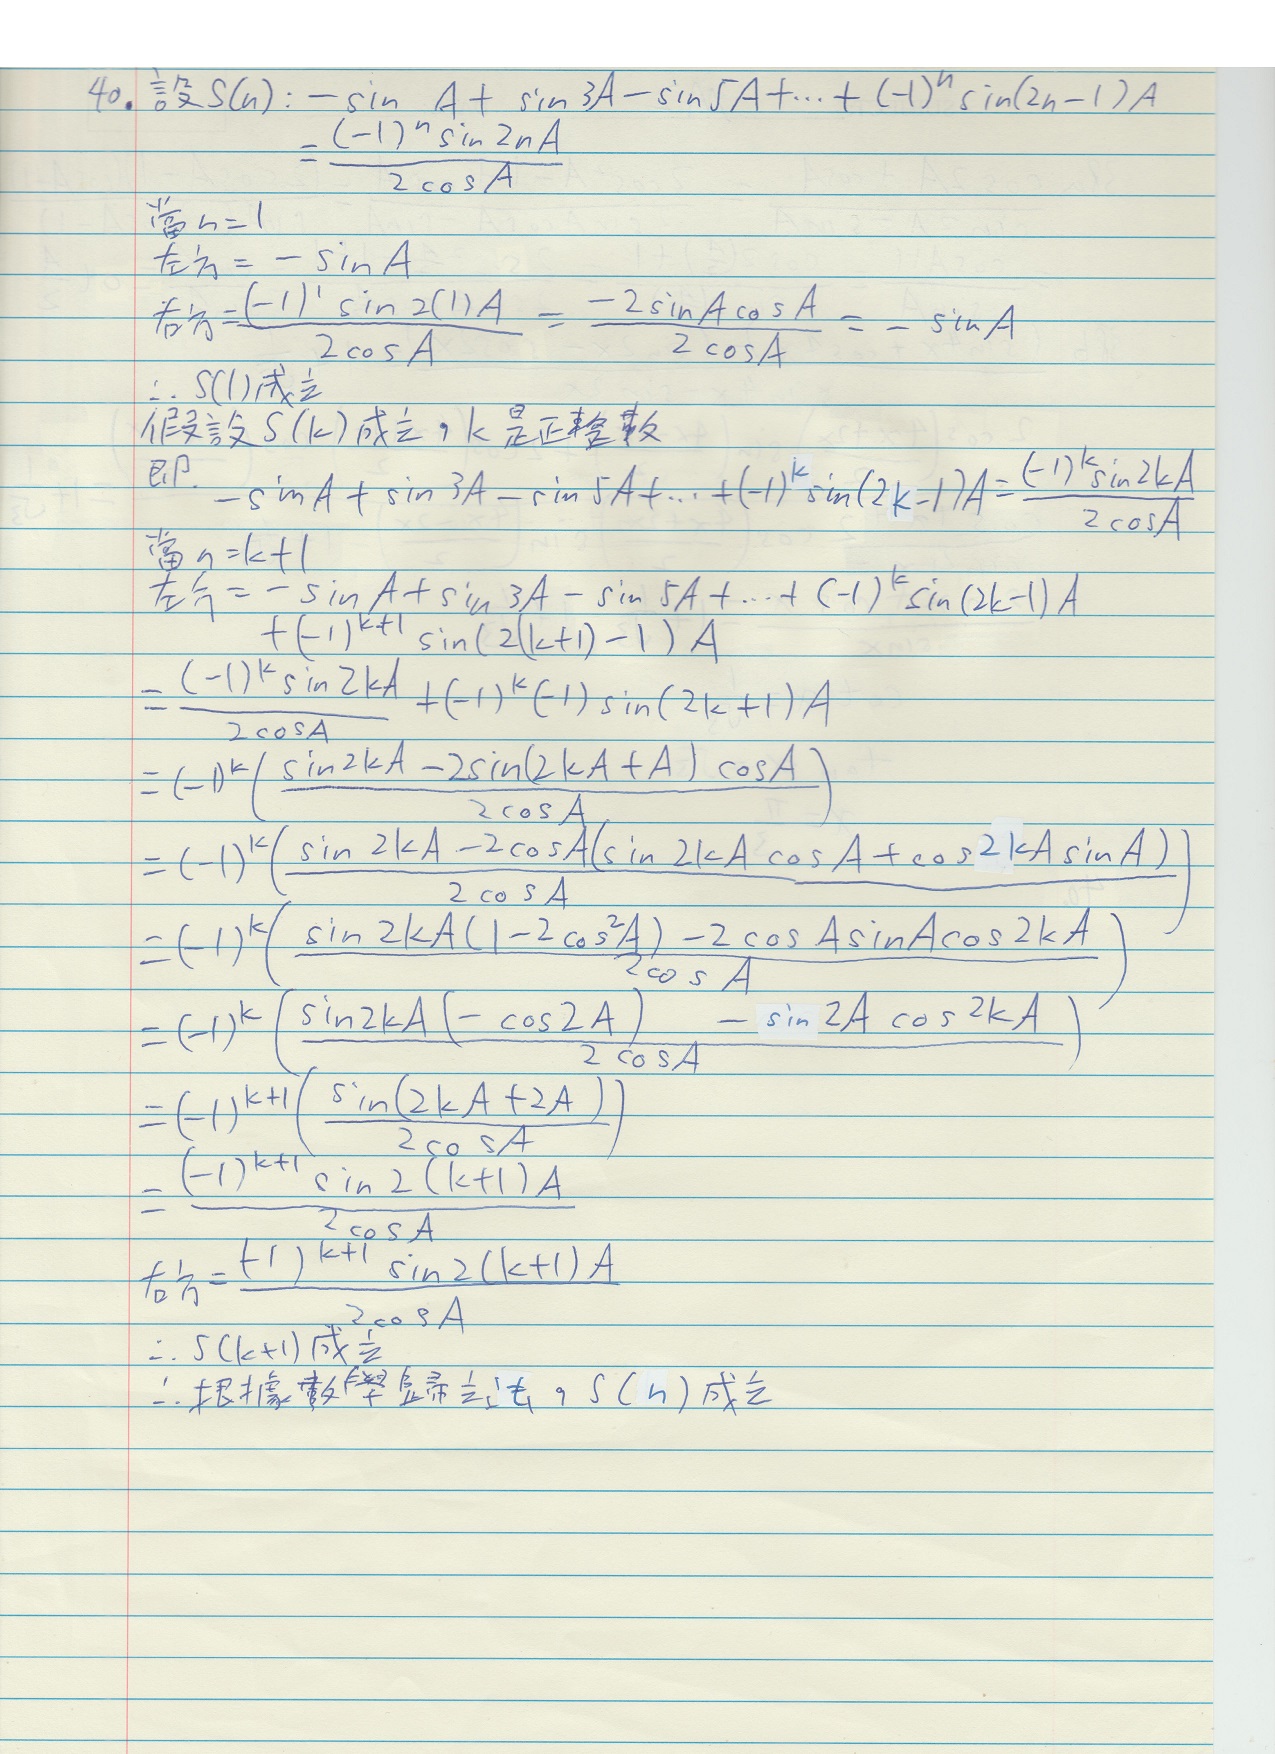 40. 設S(n): -sin A + sin 3A - sin 5A + … + (-1)^n sin(2n-1)A
= \frac{(-1)^n sin 2nA}{2 cos A}
當n=1
左方 = - sin A
右方 = \frac{(-1)^1 sin 2(1)A}{2 cos A} = \frac{-2 sin A cos A}{2 cos A} = - sin A
∴ S(1)成立
假設S(k)成立，k是正整數
即 -sin A + sin 3A - sin 5A + … + (-1)^k sin(2k-1)A = \frac{(-1)^k sin 2kA}{2 cos A}
當n=k+1
左方 = - sin A + sin 3A - sin 5A + … + (-1)^k sin(2k-1)A
+ (-1)^{k+1} sin(2(k+1)-1)A
= \frac{(-1)^k sin 2kA}{2 cos A} + (-1)^k (-1) sin(2k+1)A
= (-1)^k ( \frac{sin 2kA - 2 sin(2kA+A) cos A}{2 cos A} )
= (-1)^k ( \frac{sin 2kA - 2 cos A(sin 2kA cos A + cos 2kA sin A)}{2 cos A} )
= (-1)^k ( \frac{sin 2kA(1 - 2 cos^2 A) - 2 cos A sin A cos 2kA}{2 cos A} )
= (-1)^k ( \frac{sin 2kA(- cos 2A) - sin 2A cos 2kA}{2 cos A} )
= (-1)^{k+1} ( \frac{sin(2kA+2A)}{2 cos A} )
= \frac{(-1)^{k+1} sin 2(k+1)A}{2 cos A}
右方 = \frac{(-1)^{k+1} sin 2(k+1)A}{2 cos A}
∴ S(k+1)成立
∴ 根據數學歸立法，S(n)成立